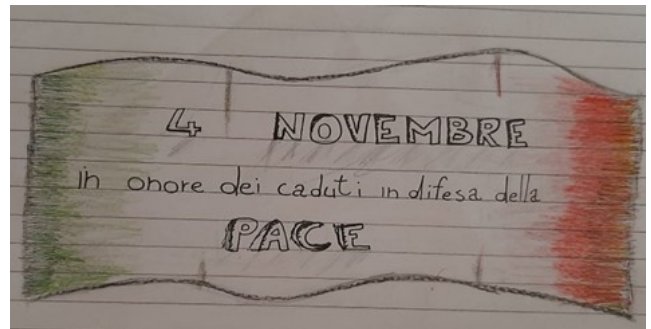 4 NOVEMBRE
in onore dei caduti in difesa della
PACE